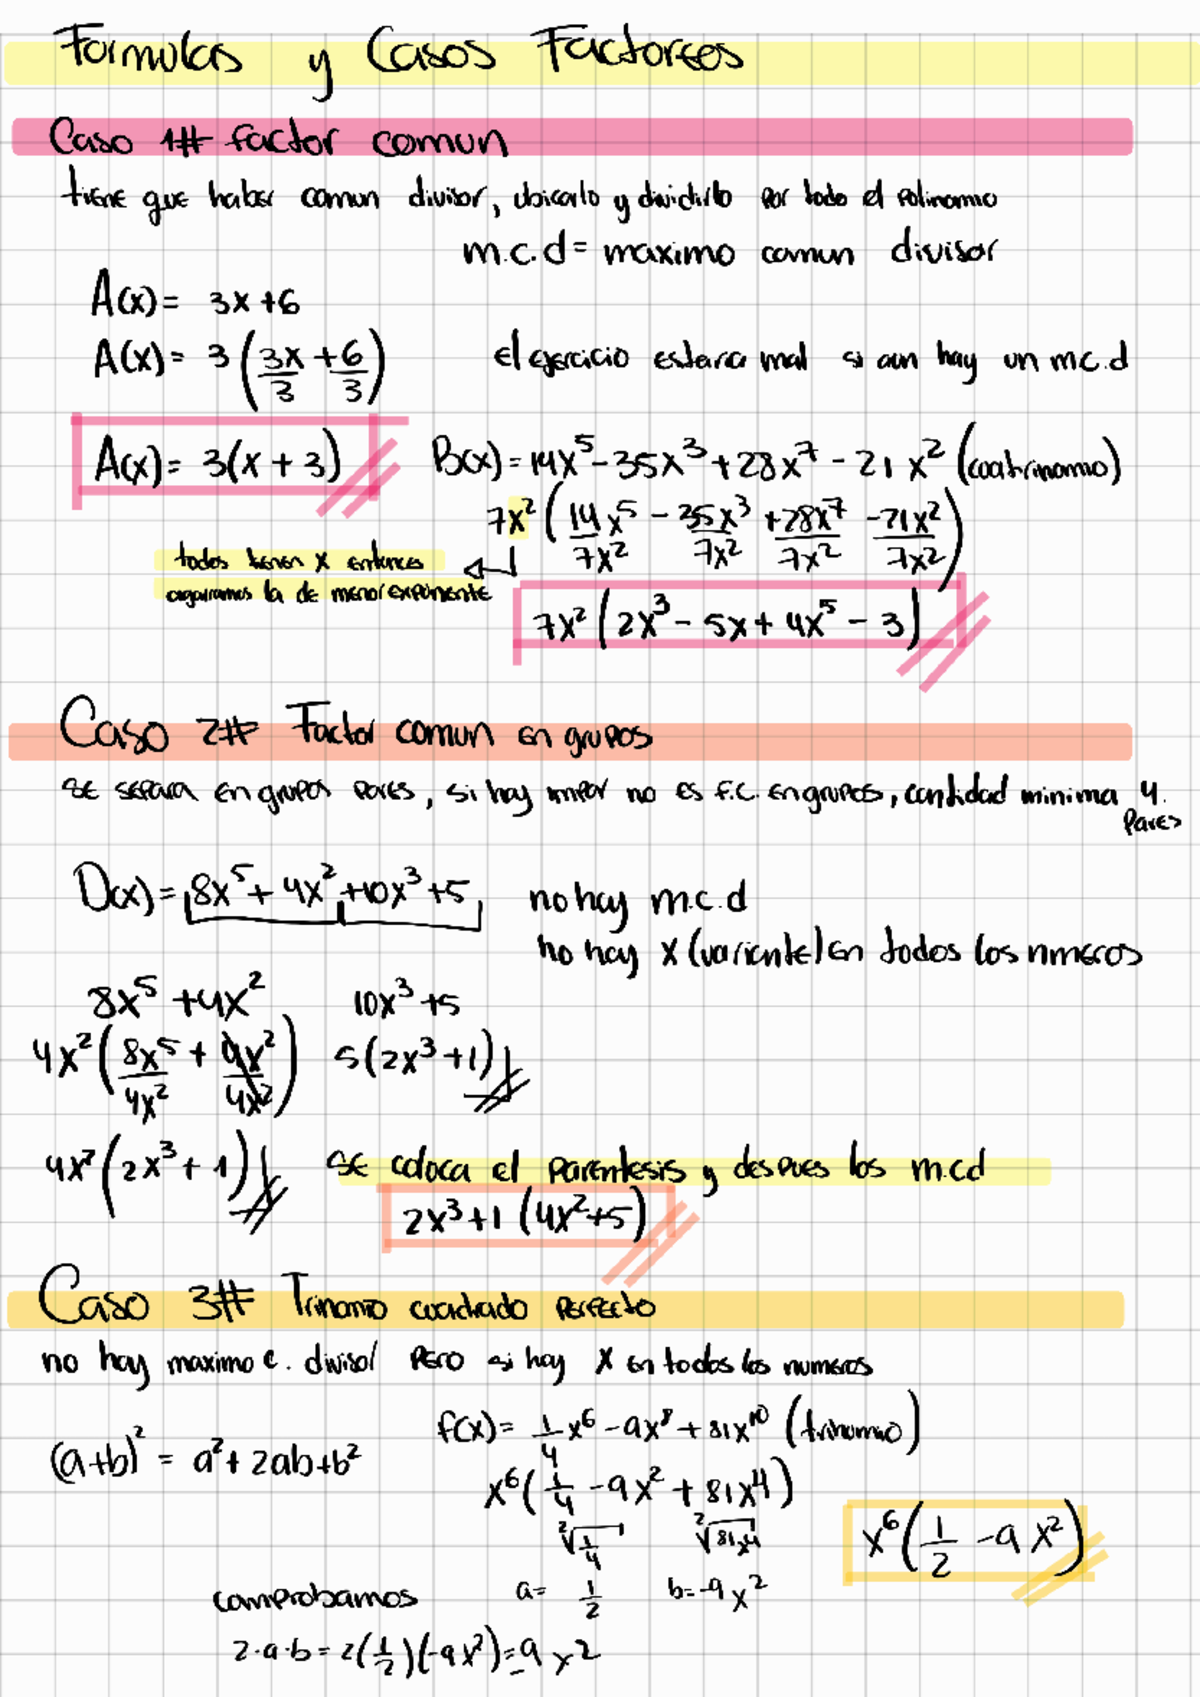 Formulas y Casos Factoreos
Caso 1# factor comun
tiene que haber comun divisor, ubicarlo y dividirlo por todo el polinomio
m.c.d = maximo comun divisor
A(x) = 3x + 6
A(x) = 3 (3x/3 + 6/3)
el ejercicio estara mal si aun hay un m.c.d
A(x) = 3(x + 3)
B(x) = 14x⁵ - 35x³ + 28x⁷ - 21x² (cuatrinomio)
7x² (14x⁵/7x² - 35x³/7x² + 28x⁷/7x² - 21x²/7x²)
todos tienen x entonces
agarramos la de menor exponente
7x² (2x³ - 5x + 4x⁵ - 3)
Caso 2# Factor comun en grupos
se separa en grupos pares, si hay impar no es f.c. en grupos, cantidad minima 4.
pares
D(x) = 8x⁵ + 4x² + 10x³ + 5
no hay m.c.d
no hay x (variente) en todos los nmeros
8x⁵ + 4x² 10x³ + 5
4x² (8x⁵/4x² + 4x²/4x²) 5(2x³ + 1)
4x² (2x³ + 1)
se coloca el parentesis y despues los m.cd
2x³ + 1 (4x² + 5)
Caso 3# Trinomio cuadrado perfecto
no hay maximo c. divisor pero si hay x en todos los numeros
f(x) = 1/4 x⁶ - 9x⁸ + 81x¹⁰ (trinomio)
(a+b)² = a² + 2ab + b²
x⁶ (1/4 - 9x² + 81x⁴)
²√1/4 ²√81x⁴
x⁶ (1/2 - 9x²)
comprobamos
a = 1/2 b = -9x²
2·a·b = 2(1/2)(-9x²) = -9x²